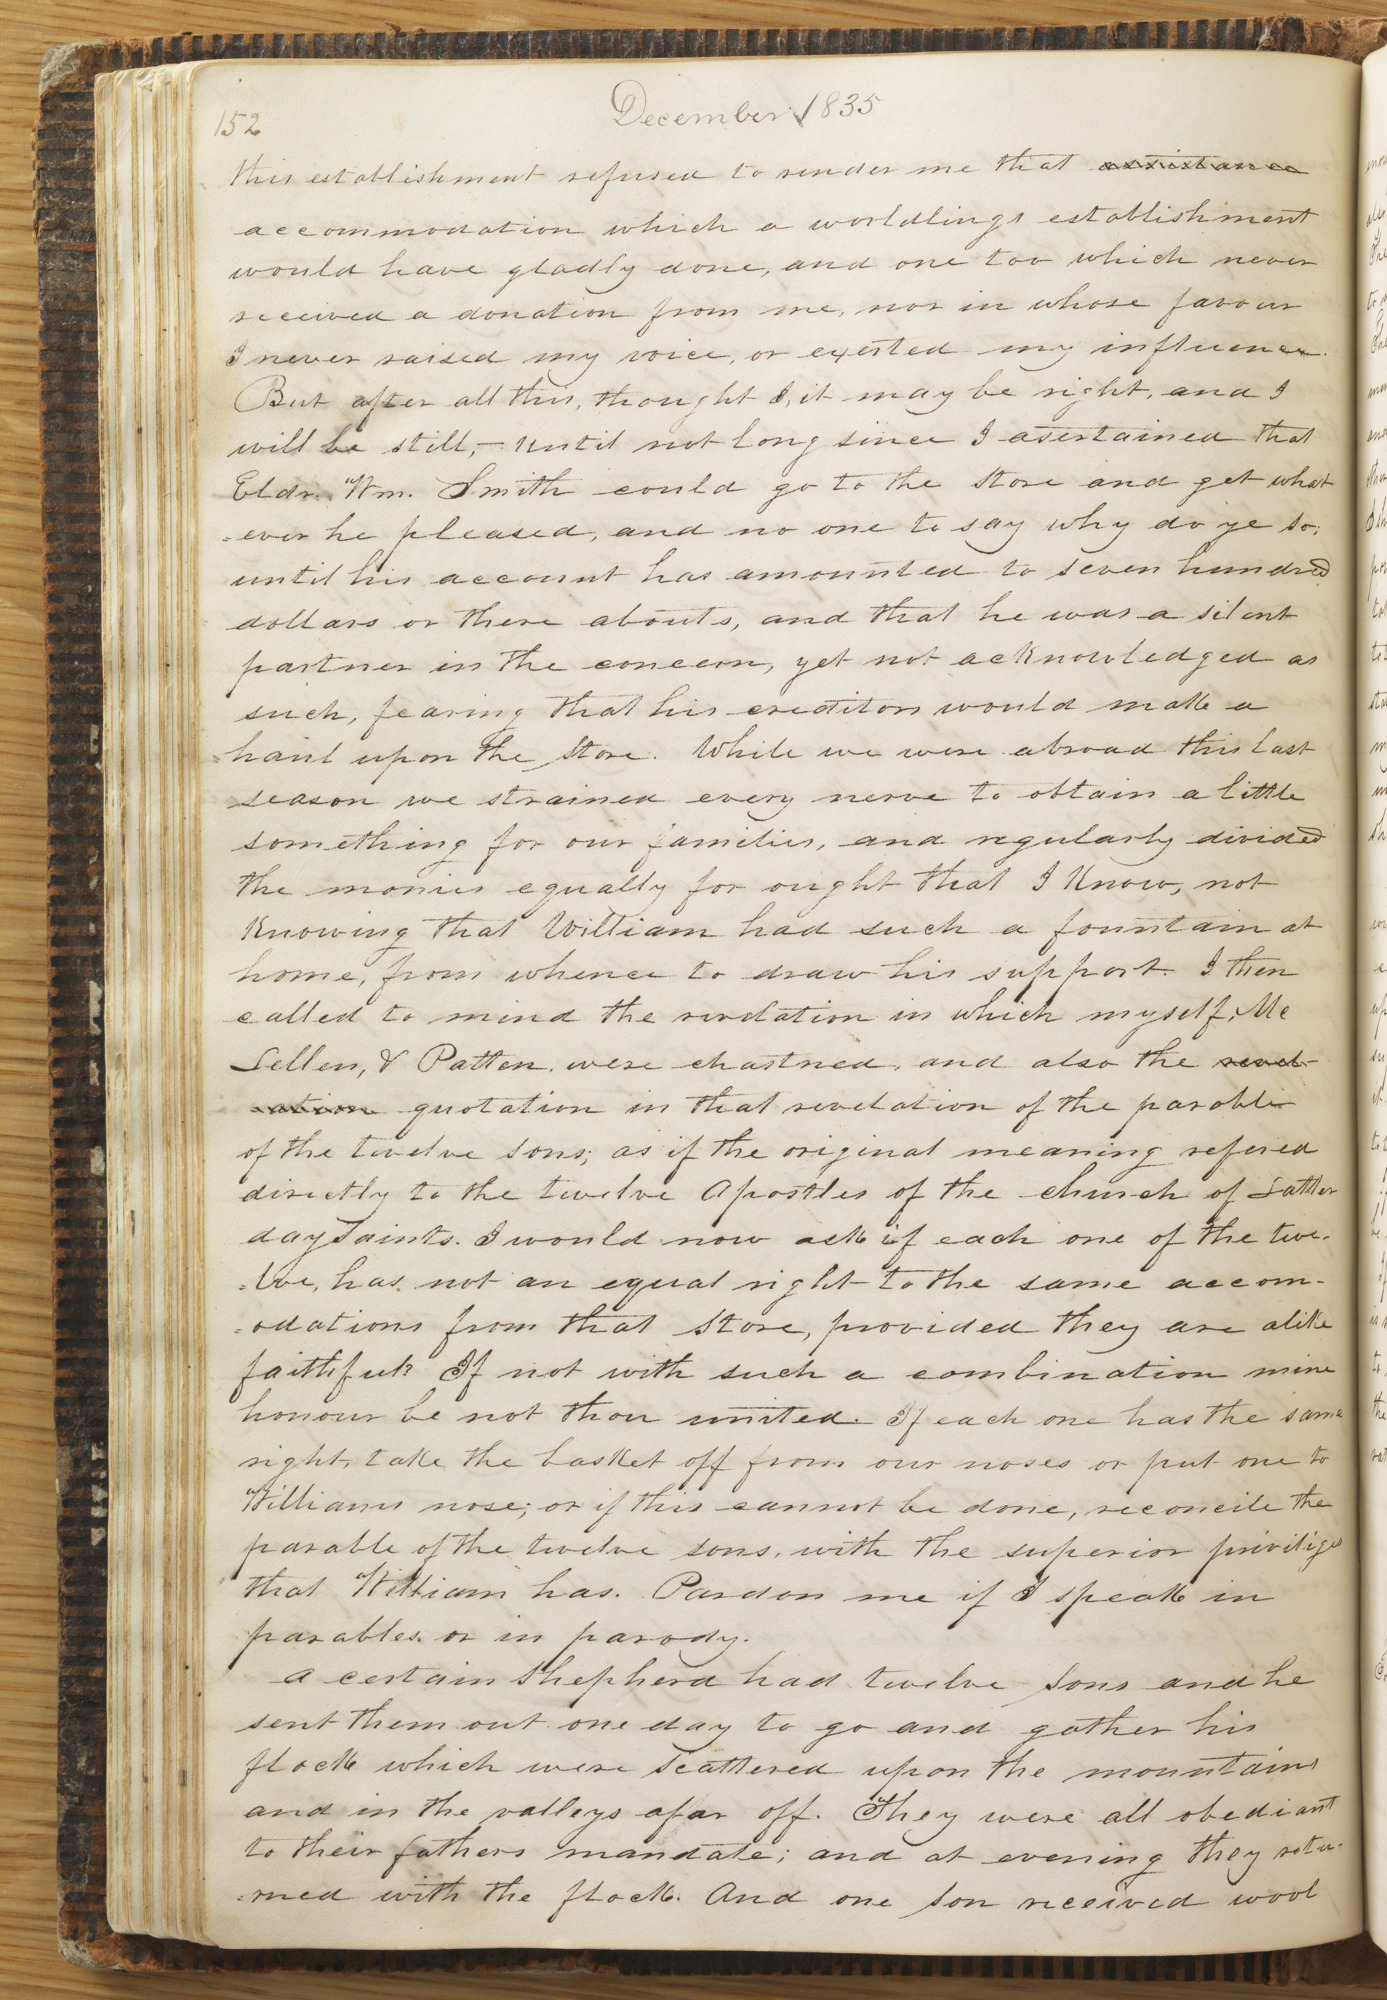 152
December 1835
this establishment refused to render me that assistance
accommodation which a worldlings establishment
would have gladly done, and one too which never
received a donation from me, nor in whose favour
I never raised my voice, or exerted my influence.
But after all this, thought I, it may be right, and I
will be still,— until not long since I asertained that
Eldr. Wm. Smith could go to the store and get what
=ever he pleased, and no one to say why do ye so;
until his account has amounted to seven hundred
dollars or there abouts, and that he was a silent
partner in the concern, yet not acknowledged as
such, fearing that his creditors would make a
haul upon the Store. While we were abroad this last
season we strained every nerve to obtain a little
something for our families, and regularly divided
the monies equally for ought that I Know, not
Knowing that William had such a fountain at
home, from whence to draw his support. I then
called to mind the revelation in which myself, Mc
Lellen, & Patten, were chastned, and also the revel-
-ation quotation in that revelation of the parable
of the twelve sons; as if the original meaning refered
directly to the twelve Apostles of the church of Latter
day Saints. I would now ask if each one of the twe-
-lve, has not an equal right to the same accom-
-odations from that Store, provided they are alike
faithful? If not with such a combination mine
honour be not thou united. If each one has the same
right, take the basket off from our noses or put one to
Williams nose; or if this cannot be done, reconcile the
parable of the twelve sons, with the superior priviliges
that William has. Pardon me if I speak in
parables or in parody.
A certain Shepherd had twelve Sons and he
sent them out one day to go and gather his
flock which were scattered upon the mountains
and in the valleys afar off. They were all obediant
to their fathers mandate; and at evening they retu-
=rned with the flock. And one Son received wool